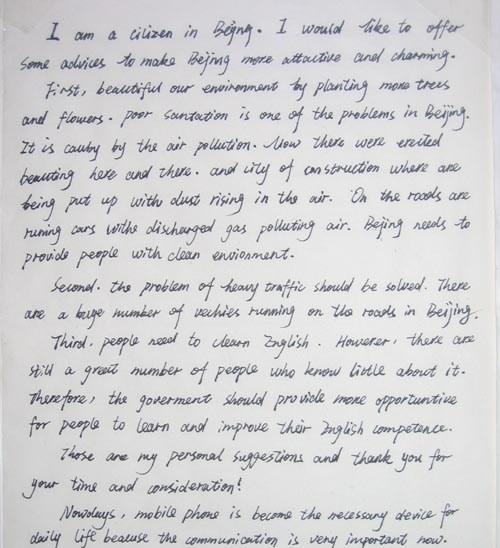 I am a cilizen in Bejng. I would like to offer
some advices to make Beijing more attactive and charming.
First, beautiful our environment by planting more trees
and flowers. poor santation is one of the problems in Beijing.
It is cauby by the air pollution. Now there were erected
beauting here and there. and lily of construction where are
being put up with dust rising in the air. On the roads are
runing cars withe discharged gas polluting air. Bejing needs to
provide people with clean envionment.
Second. the problem of heavy traffic should be solved. There
are a huge number of vechies running on the roads in Beijing.
Third. people need to clearn English. However, there are
still a great number of people who know little about it.
Therefore, the goverment should provide more opportuntive
for people to learn and improve their English competence.
Those are my personal suggestions and thank you for
your time and consideration!
Nowdays, mobile phone is become the necessary device for
daily life beacuse the communication is very important now.